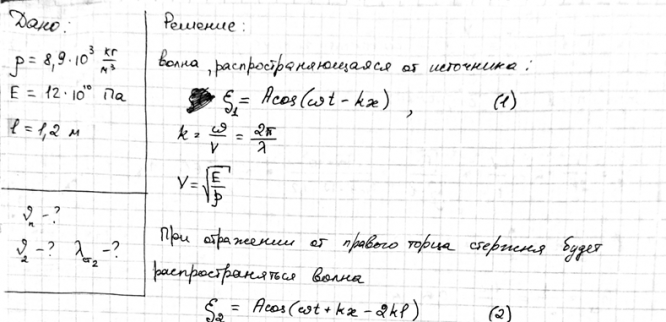 Дано:
ρ = 8,9·10³ кг/м³
E = 12·10¹⁰ Па
l = 1,2 м
ν_n - ?
ν_2 - ? λ_ст2 - ?
Решение:
волна, распространяющаяся от источника:
ξ_1 = A cos(ωt - kx), (1)
k = ω/V = 2π/λ
V = √(E/ρ)
При отражении от правого торца стержня будет
распространяться волна
ξ_2 = A cos(ωt + kx - 2kl) (2)